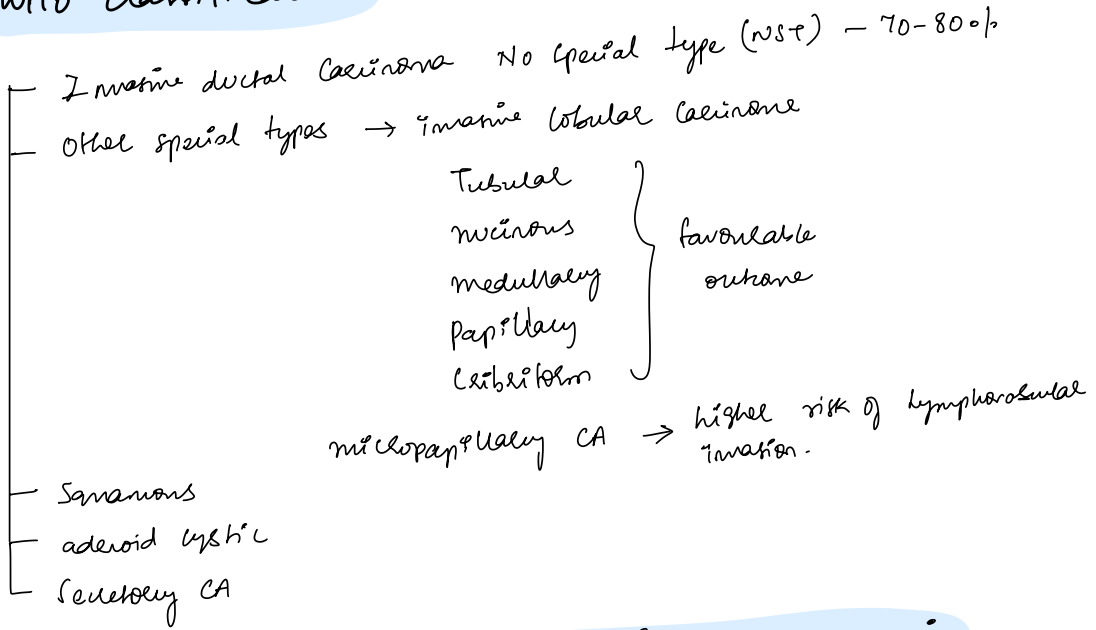 WHO
Invasive ductal Carcinoma No special type (NST) – 70-80%
Other special types → invasive lobular Carcinoma
Tubular
mucinous
medullary
Papillary
Cribriform
favourable
outcome
micropapillary CA → higher risk of lymphovascular
invasion.
Squamous
adenoid cystic
Secretory CA